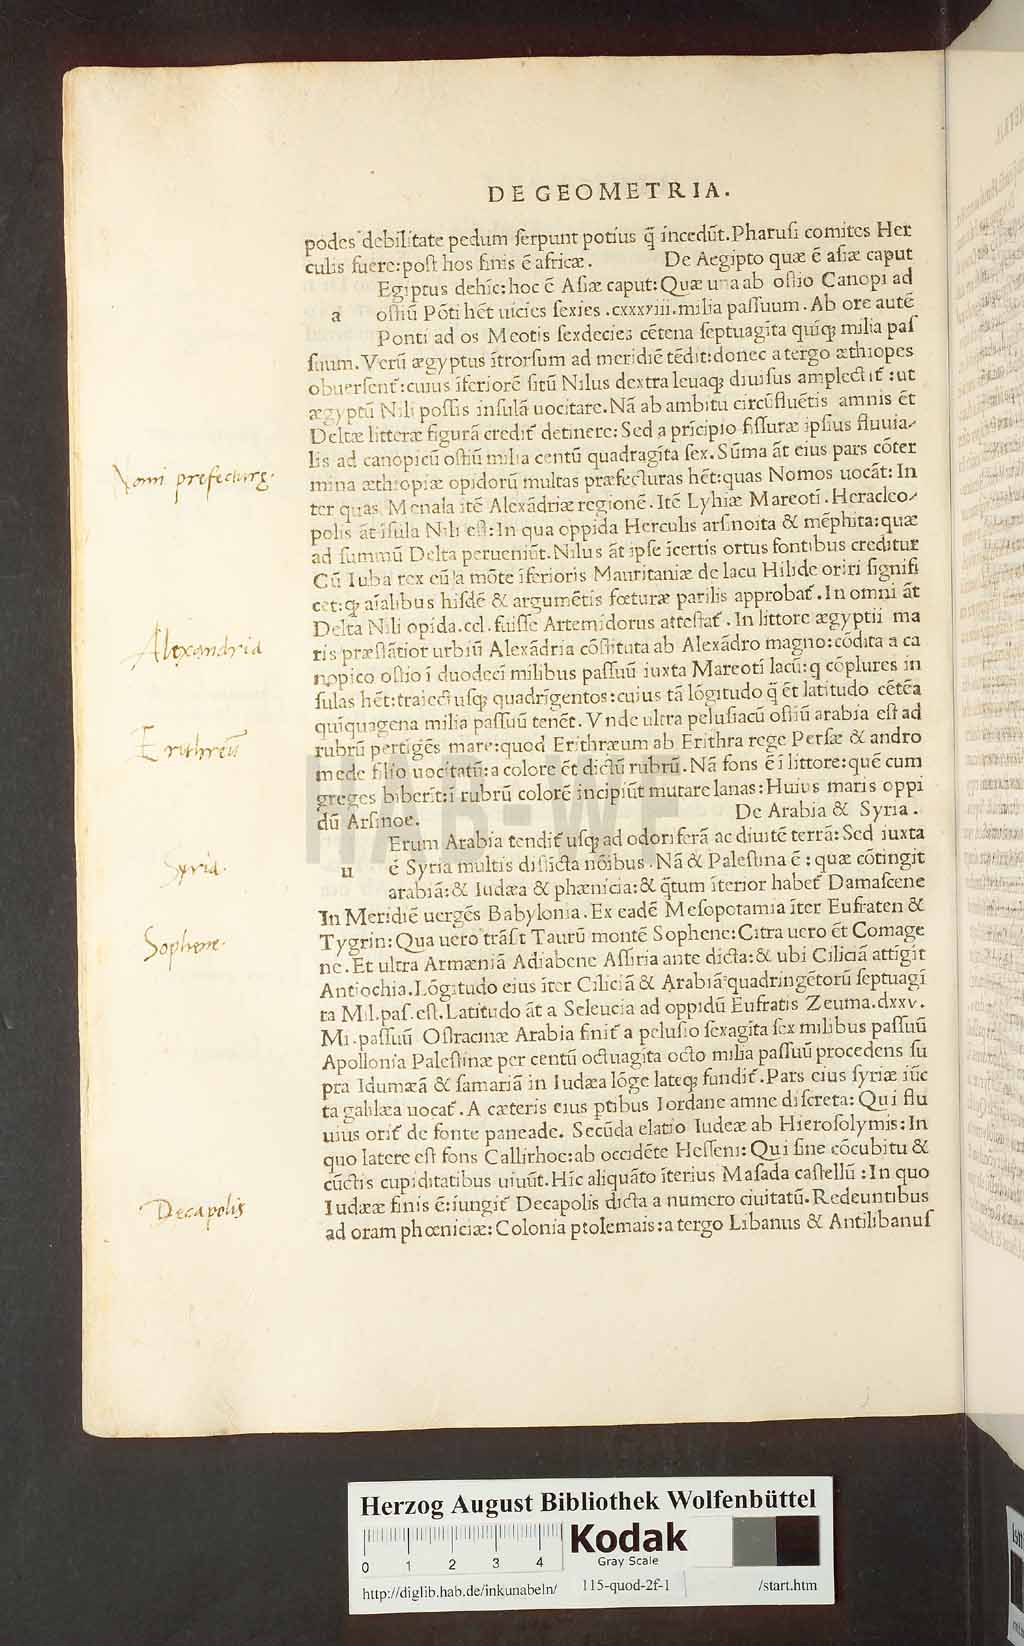 DE GEOMETRIA.
podes debilitate pedum ſerpunt potius q̃ incedūt. Pharuſi comites Her
culis fuere: poſt hos finis ē africæ. De Aegipto quæ ē aſiæ caput
Egiptus dehīc: hoc ē Aſiæ caput: Quæ una ab oſtio Canopi ad
a oſtiū Pōti hēt uicies ſexies .cxxxviii. milia paſſuum. Ab ore autē
Ponti ad os Meotis ſexdecies cētena ſeptuagīta quīq; milia paſ
ſuum. Verū ægyptus ītrorſum ad meridiē tēdit: donec a tergo æthiopes
obuerſent᷑: cuius īferiorē ſitū Nilus dextra leuaq; diuiſus amplectit᷑: ut
ægyptū Nili poſſis inſulā uocitare. Nā ab ambitu circūfluētis amnis ēt
Deltæ litteræ figurā credit᷑ detinere: Sed a prīcipio fiſſuræ ipſius fluuia⸗
lis ad canopicū oſtiū milia centū quadragīta ſex. Sūma āt eius pars cōter
mina æthiopiæ opidorū multas præfecturas hēt: quas Nomos uocāt: In
ter quas Menala itē Alexādriæ regionē. Itē Lyhiæ Mareotī. Heracleo⸗
polis āt īſula Nili eſt: In qua oppida Herculis arſinoita & mēphita: quæ
ad ſummū Delta perueniūt. Nilus āt ipſe īcertis ortus fontibus creditur
Cū Iuba rex eū a mōte īferioris Mauritaniæ de lacu Hilide oriri ſignifi
cet: q; aīalibus hiſdē & argumētis fœturæ parilis approbat᷑. In omni āt
Delta Nili opida .ccl. fuiſſe Artemidorus atteſtat᷑. In littore ægyptii ma
ris præſtātior urbiū Alexādria cōſtituta ab Alexādro magno: cōdita a ca
nopico oſtio ī duodecī milibus paſſuū iuxta Mareotī lacū: q cōplures in
ſulas hēt: traiectuſq; quadrīgentos: cuius tā lōgitudo q̃ ēt latitudo cētēa
quīquagena milia paſſuū tenēt. Vnde ultra peluſiacū oſtiū arabia eſt ad
rubrū pertīgēs mare: quod Erithræum ab Erithra rege Perſæ & andro
mede filio uocitatū: a colore ēt dictū rubrū. Nā fons ē ī littore: quē cum
greges biberīt: ī rubrū colorē incipiūt mutare lanas: Huius maris oppi
dū Arſinoe. De Arabia & Syria.
Erum Arabia tendit᷑ uſq; ad odoriferā ac diuitē terrā: Sed iuxta
u ē Syria multis diſtīcta nōibus. Nā & Paleſtina ē: quæ cōtingit
arabiā: & Iudæa & phænicia: & q̃tum īterior habet᷑ Damaſcene
In Meridiē uergēs Babylonia. Ex eadē Meſopotamia īter Eufraten &
Tygrin: Qua uero trāſt Taurū montē Sophene: Citra uero ēt Comage
ne. Et ultra Armæniā Adiabene Aſſiria ante dicta: & ubi Ciliciā attigit
Antiochia. Lōgitudo eius īter Ciliciā & Arabiā quadringētorū ſeptuagī
ta Mil. paſ. eſt. Latitudo āt a Seleucia ad oppidū Eufratis Zeuma. dxxv.
Mi. paſſuū Oſtracinæ Arabia finit᷑ a peluſio ſexagīta ſex milibus paſſuū
Apollonia Paleſtinæ per centū octuagīta octo milia paſſuū procedens ſu
pra Idumæā & ſamariā in Iudæa lōge lateq; fundit᷑. Pars eius ſyriæ iūc
ta galilæa uocat᷑. A cæteris eius ptibus Iordane amne diſcreta: Qui flu
uius orit᷑ de fonte paneade. Secūda elatio Iudeæ ab Hieroſolymis: In
quo latere eſt fons Callirhoe: ab occidēte Heſſeni: Qui ſine cōcubitu &
cūctis cupiditatibus uiuūt. Hīc aliquāto īterius Maſada caſtellū: In quo
Iudææ finis ē: iungit᷑ Decapolis dicta a numero ciuitatū. Redeuntibus
ad oram phœniciæ: Colonia ptolemais: a tergo Libanus & Antilibanuſ
Nomi prefecturę.
Alexandria
Erithreū
Syria.
Sophene.
Decapolis
HAB-WF
Herzog August Bibliothek Wolfenbüttel
0 1 2 3 4
Kodak
Gray Scale
http://diglib.hab.de/inkunabeln/ 115-quod-2f-1 /start.htm